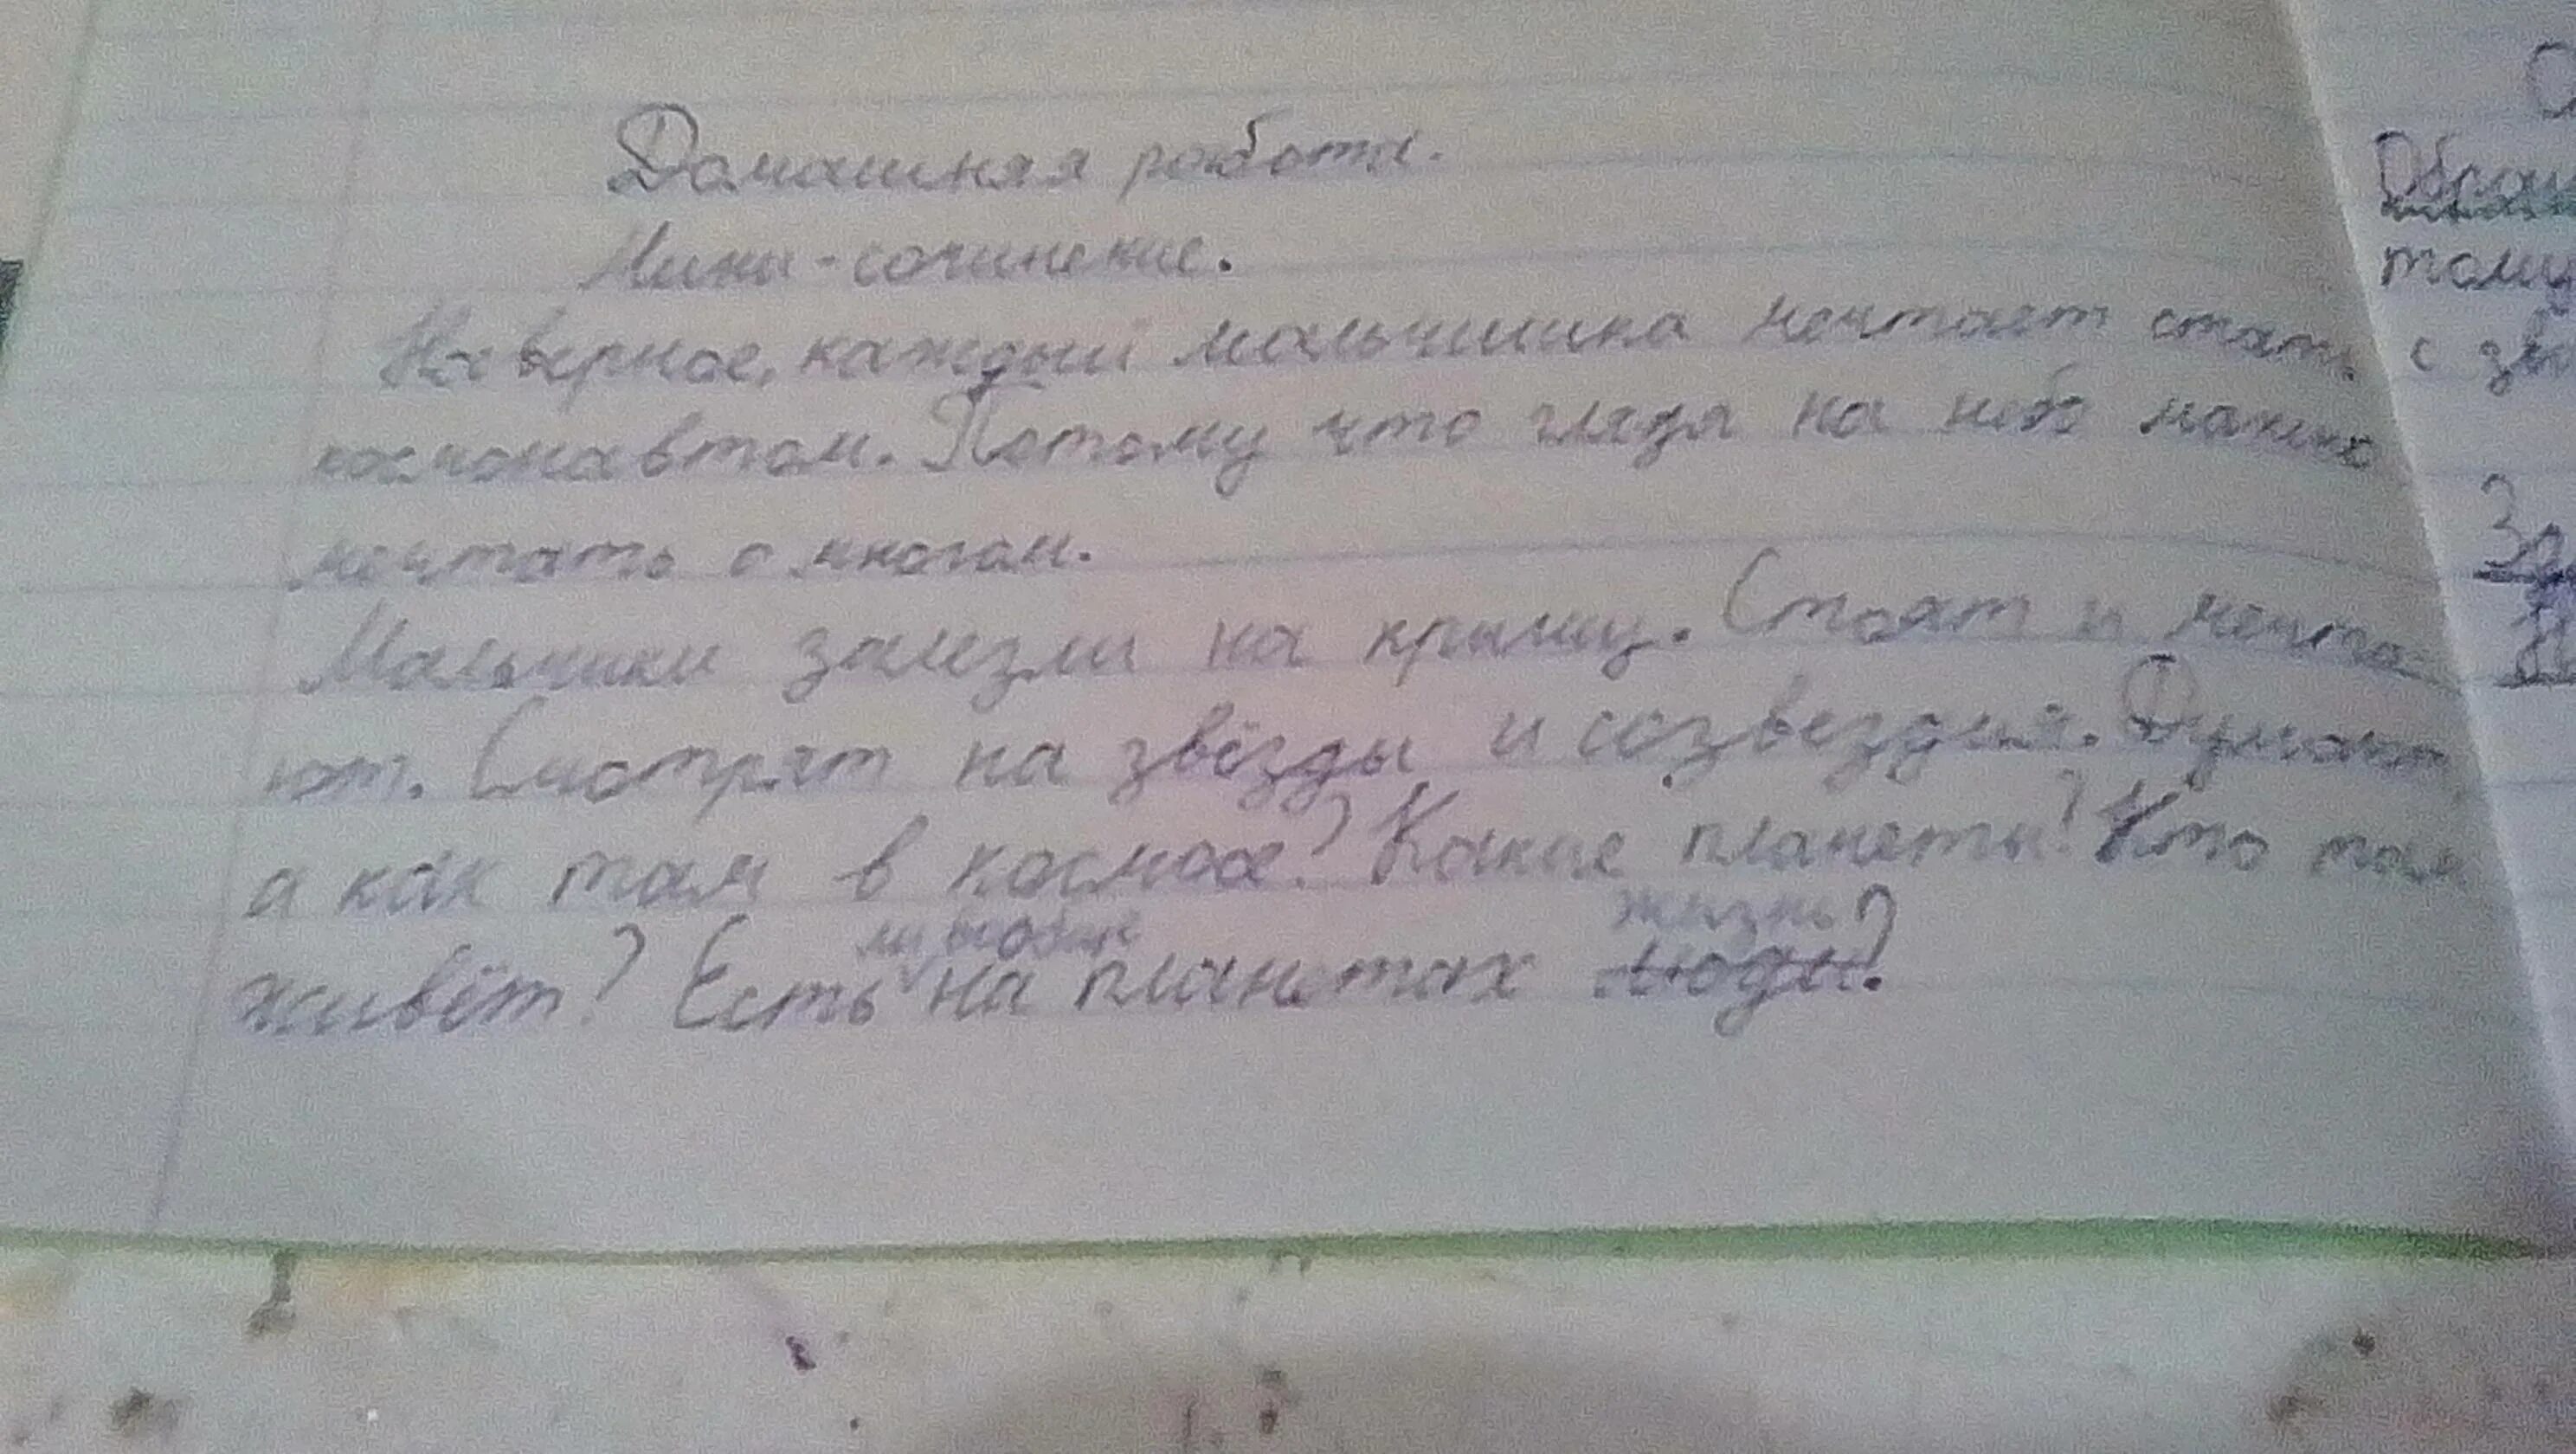 Домашняя работа.
Мини-сочинение.
Наверное, каждый мальчишка мечтает стать
космонавтом. Потому что глядя на небо можно
мечтать о многом.
Мальчики залезли на крышу. Стоят и мечта
ют. Смотрят на звёзды и созвездия. Думают
а как там в космосе? Какие планеты? Кто там
жизнь?
живёт? Есть на планетах люди?
Обра
тому
с зв